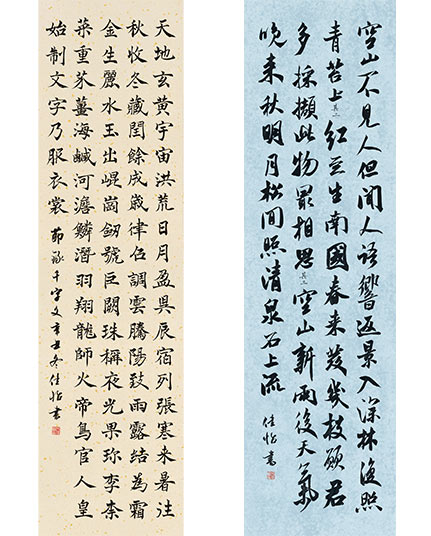 天地玄黃宇宙洪荒日月盈昃辰宿列張寒来暑往
秋收冬藏閏餘成歲律召調雲騰陽致雨露結為霜
金生麗水玉出崐崗劒號巨闕珠稱夜光果珍李柰
菜重芥薑海鹹河澹鱗潛羽翔龍師火帝鳥官人皇
始制文字乃服衣裳 節錄千字文辛丑冬佳怡書
空山不見人但聞人語響返景入深林復照
青苔上其一紅豆生南國春来發幾枝願君
多採擷此物最相思其二空山新雨後天氣
晚来秋明月松間照清泉石上流 佳怡書